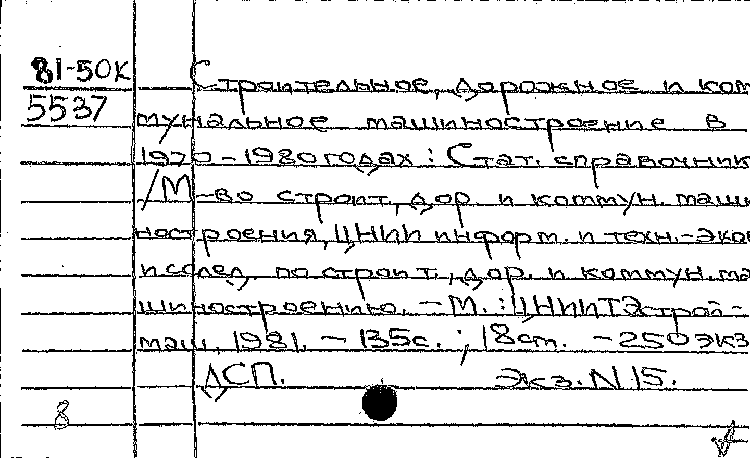 81-50К
5537
Строительное, дорожное и ком
мунальное машиностроение в
1970-1980 годах : Стат. справочник
/М-во строит., дор. и коммун. маши
ностроения, ЦНИИ информ. и техн.-экон
исслед. по строит., дор. и коммун. ма
шиностроению. - М. : ЦНИИТЭстрой-
маш, 1981. - 135с. ; 18 ст. - 250 экз
ДСП. Экз. N 15.
8